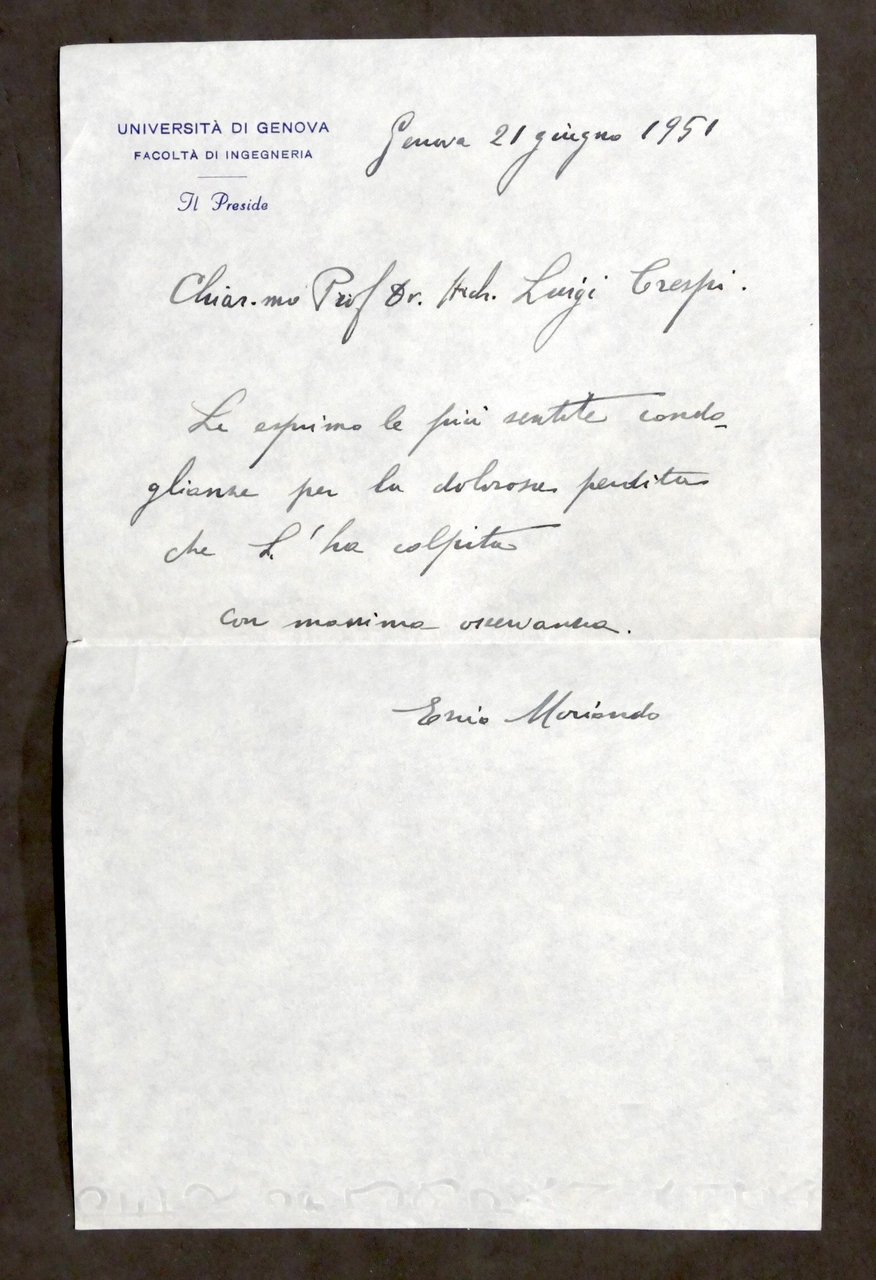 UNIVERSITÀ DI GENOVA
FACOLTÀ DI INGEGNERIA
Il Preside
Genova 21 giugno 1951
Chiar.mo Prof Dr. Arch. Luigi Crespi.
Le esprimo le più sentite condo-
glianze per la dolorosa perdita
che L'ha colpita
con massima osservanza.
Enio Moriondo